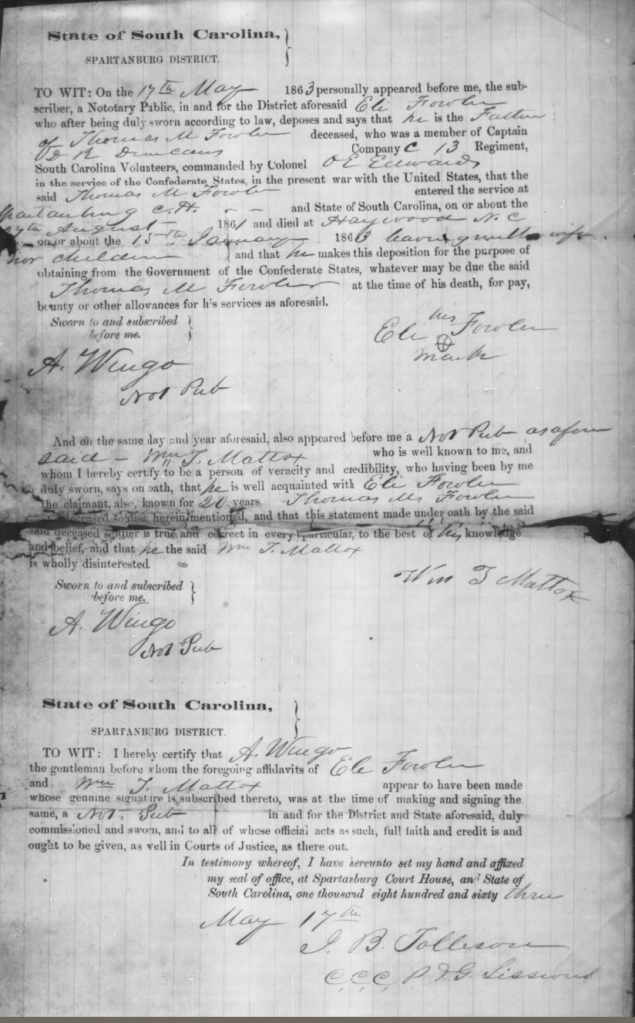 State of South Carolina,
SPARTANBURG DISTRICT.
TO WIT: On the 17th May 1863 personally appeared before me, the sub-
scriber, a Nototary Public, in and for the District aforesaid Eli Fowler
who after being duly sworn according to law, deposes and says that he is the Father
of Thomas M Fowler deceased, who was a member of Captain
D R Duncans Company C 13 Regiment,
South Carolina Volunteers, commanded by Colonel O E Edwards
in the service of the Confederate States, in the present war with the United States, that the
said Thomas M Fowler entered the service at
Spartanburg C.H. - - and State of South Carolina, on or about the
August - 1861 and died at Haywood N.C
on or about the 15th January 1863 leaving wife
nor children and that he makes this deposition for the purpose of
obtaining from the Government of the Confederate States, whatever may be due the said
Thomas M Fowler at the time of his death, for pay,
bounty or other allowances for his services as aforesaid.
Sworn to and subscribed
before me.
his
Eli Fowler
mark
A. Wingo
Not Pub
And on the same day and year aforesaid, also appeared before me a Not Pub as afore
said - Wm T. Mattox who is well known to me, and
whom I hereby certify to be a person of veracity and credibility, who having been by me
duly sworn, says on oath, that he is well acquainted with Eli Fowler
the claimant, also, known for 20 years Thomas M Fowler
deceased soldier herein mentioned, and that this statement made under oath by the said
said deceased soldier is true and correct in every particular, to the best of his knowledge
and belief, and that he the said Wm T. Mattox
is wholly disinterested.
Wm T Mattox
Sworn to and subscribed
before me.
A. Wingo
Not Pub
State of South Carolina,
SPARTANBURG DISTRICT.
TO WIT: I hereby certify that A. Wingo
the gentleman before whom the foregoing affidavits of Eli Fowler
and Wm T. Mattox appear to have been made
whose genuine signature is subscribed thereto, was at the time of making and signing the
same, a Not. Pub in and for the District and State aforesaid, duly
commissioned and sworn, and to all of whose official acts as such, full faith and credit is and
ought to be given, as well in Courts of Justice, as there out.
In testimony whereof, I have hereunto set my hand and affixed
my seal of office, at Spartanburg Court House, and State of
South Carolina, one thousand eight hundred and sixty three
May 17th
J. B. Tolleson
C.C.C. P. & G. Sessions